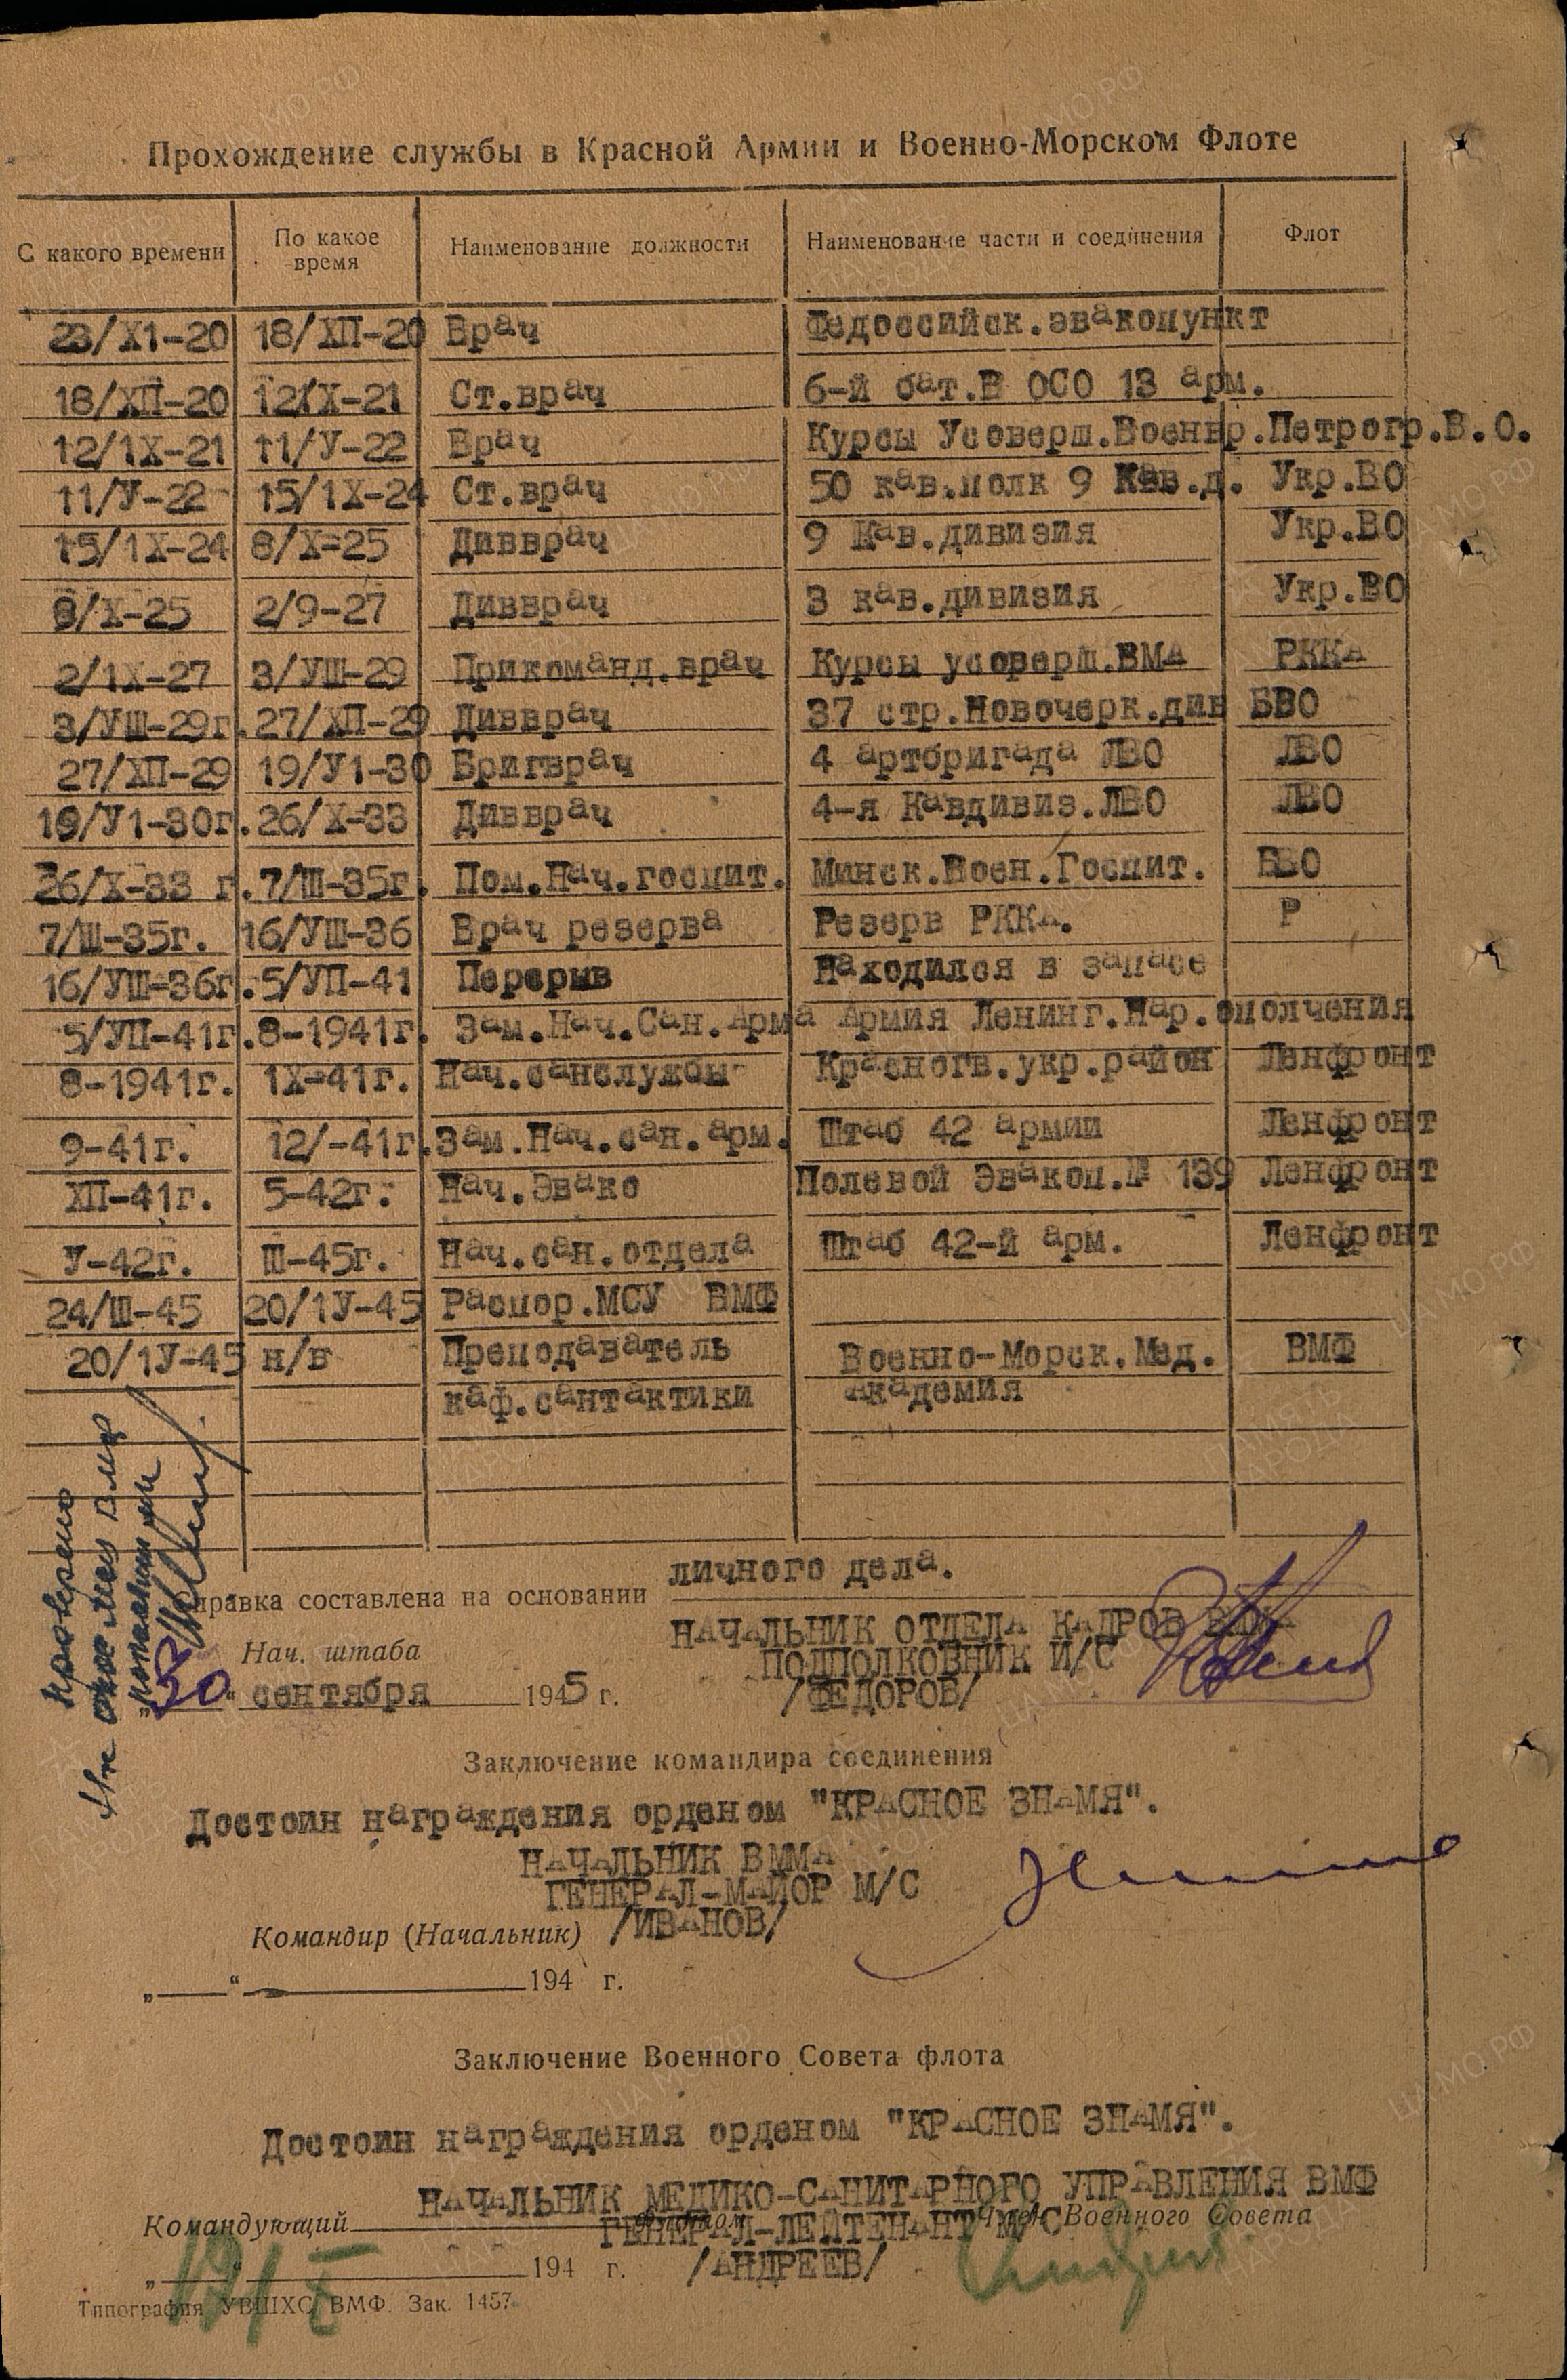 Прохождение службы в Красной Армии и Военно-Морском Флоте
С какого времени По какое время Наименование должности Наименование части и соединения Флот
23/Х1-20 18/ХП-20 Врач Федоссийск.эвакопункт
18/ХП-20 12/X-21 Ст.врач 6-й бат.В ОСО 13 арм.
12/1Х-21 11/У-22 Врач Курсы Усоверш.Военвр.Петрогр.В.О.
11/У-22 15/1Х-24 Ст.врач 50 кав.полк 9 Кав.д. Укр.ВО
15/1Х-24 8/Х-25 Дивврач 9 Кав.дивизия Укр.ВО
8/Х-25 2/9-27 Дивврач 3 кав.дивизия Укр.ВО
2/1Х-27 3/УШ-29 Прикоманд.врач Курсы усоверш.ВМА РККА
3/УШ-29г. 27/ХП-29 Дивврач 37 стр.Новочерк.див БВО
27/ХП-29 19/У1-30 Бригврач 4 артбригада ЛВО ЛВО
19/У1-30г. 26/Х-33 Дивврач 4-я Кавдивиз.ЛВО ЛВО
26/Х-33 г. 7/Ш-35г. Пом.Нач.госпит. Минск.Воен.Госпит. БВО
7/Ш-35г. 16/УШ-36 Врач резерва Резерв РККА. Р
16/УШ-36г. 5/УП-41 Перерыв Находился в запасе
5/УП-41г. 8-1941г. Зам.Нач.Сан.Арма Армия Ленинг.Нар.ополчения
8-1941г. 1Х-41г. Нач.санслужбы Красногв.укр.район Ленфронт
9-41г. 12/-41г. Зам.Нач.сан.арм. Штаб 42 армии Ленфронт
ХП-41г. 5-42г. Нач.Эвако Полевой Эвакоп.№ 139 Ленфронт
У-42г. Ш-45г. Нач.сан.отдела Штаб 42-й арм. Ленфронт
24/Ш-45 20/1У-45 Распор.МСУ ВМФ
20/1У-45 н/в Преподаватель Военно-Морск.Мед. ВМФ
каф.сантактики Академия
Проверено
личного дела.
Справка составлена на основании
НАЧАЛЬНИК ОТДЕЛА КАДРОВ ВММА
Нач. штаба ПОДПОЛКОВНИК И/С
„30" сентября 1945 г. /ФЕДОРОВ/
Заключение командира соединения
Достоин награждения орденом "КРАСНОЕ ЗНАМЯ".
НАЧАЛЬНИК ВММА
ГЕНЕРАЛ-МАЙОР М/С
Командир (Начальник) /ИВАНОВ/
„ " 194 г.
Заключение Военного Совета флота
Достоин награждения орденом "КРАСНОЕ ЗНАМЯ".
НАЧАЛЬНИК МЕДИКО-САНИТАРНОГО УПРАВЛЕНИЯ ВМФ
Командующий флотом Член Военного Совета
ГЕНЕРАЛ-ЛЕЙТЕНАНТ М/С
„ " 194 г. /АНДРЕЕВ/
Типография УВШХС ВМФ. Зак. 1457